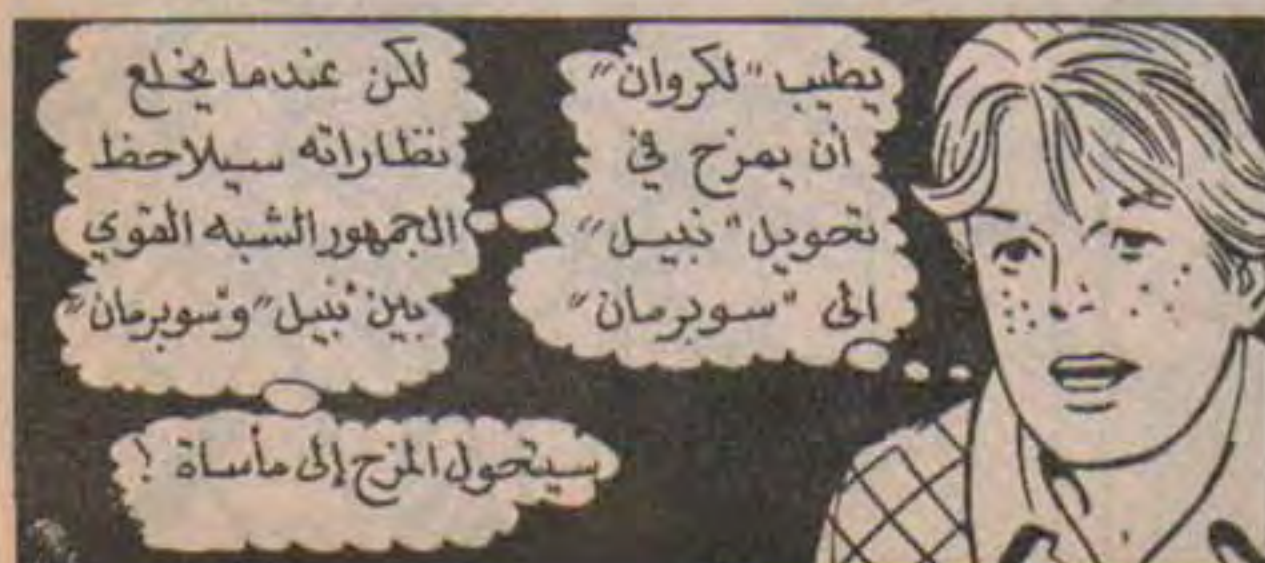 يطيب "لكروان"
أن يمزح في
تحويل "نبيل"
الى "سوبرمان"
لكن عندما يخلع
نظاراته سيلاحظ
الجمهور الشبه القوي
بين "نبيل" و"سوبرمان"
سيتحول المزح إلى مأساة !